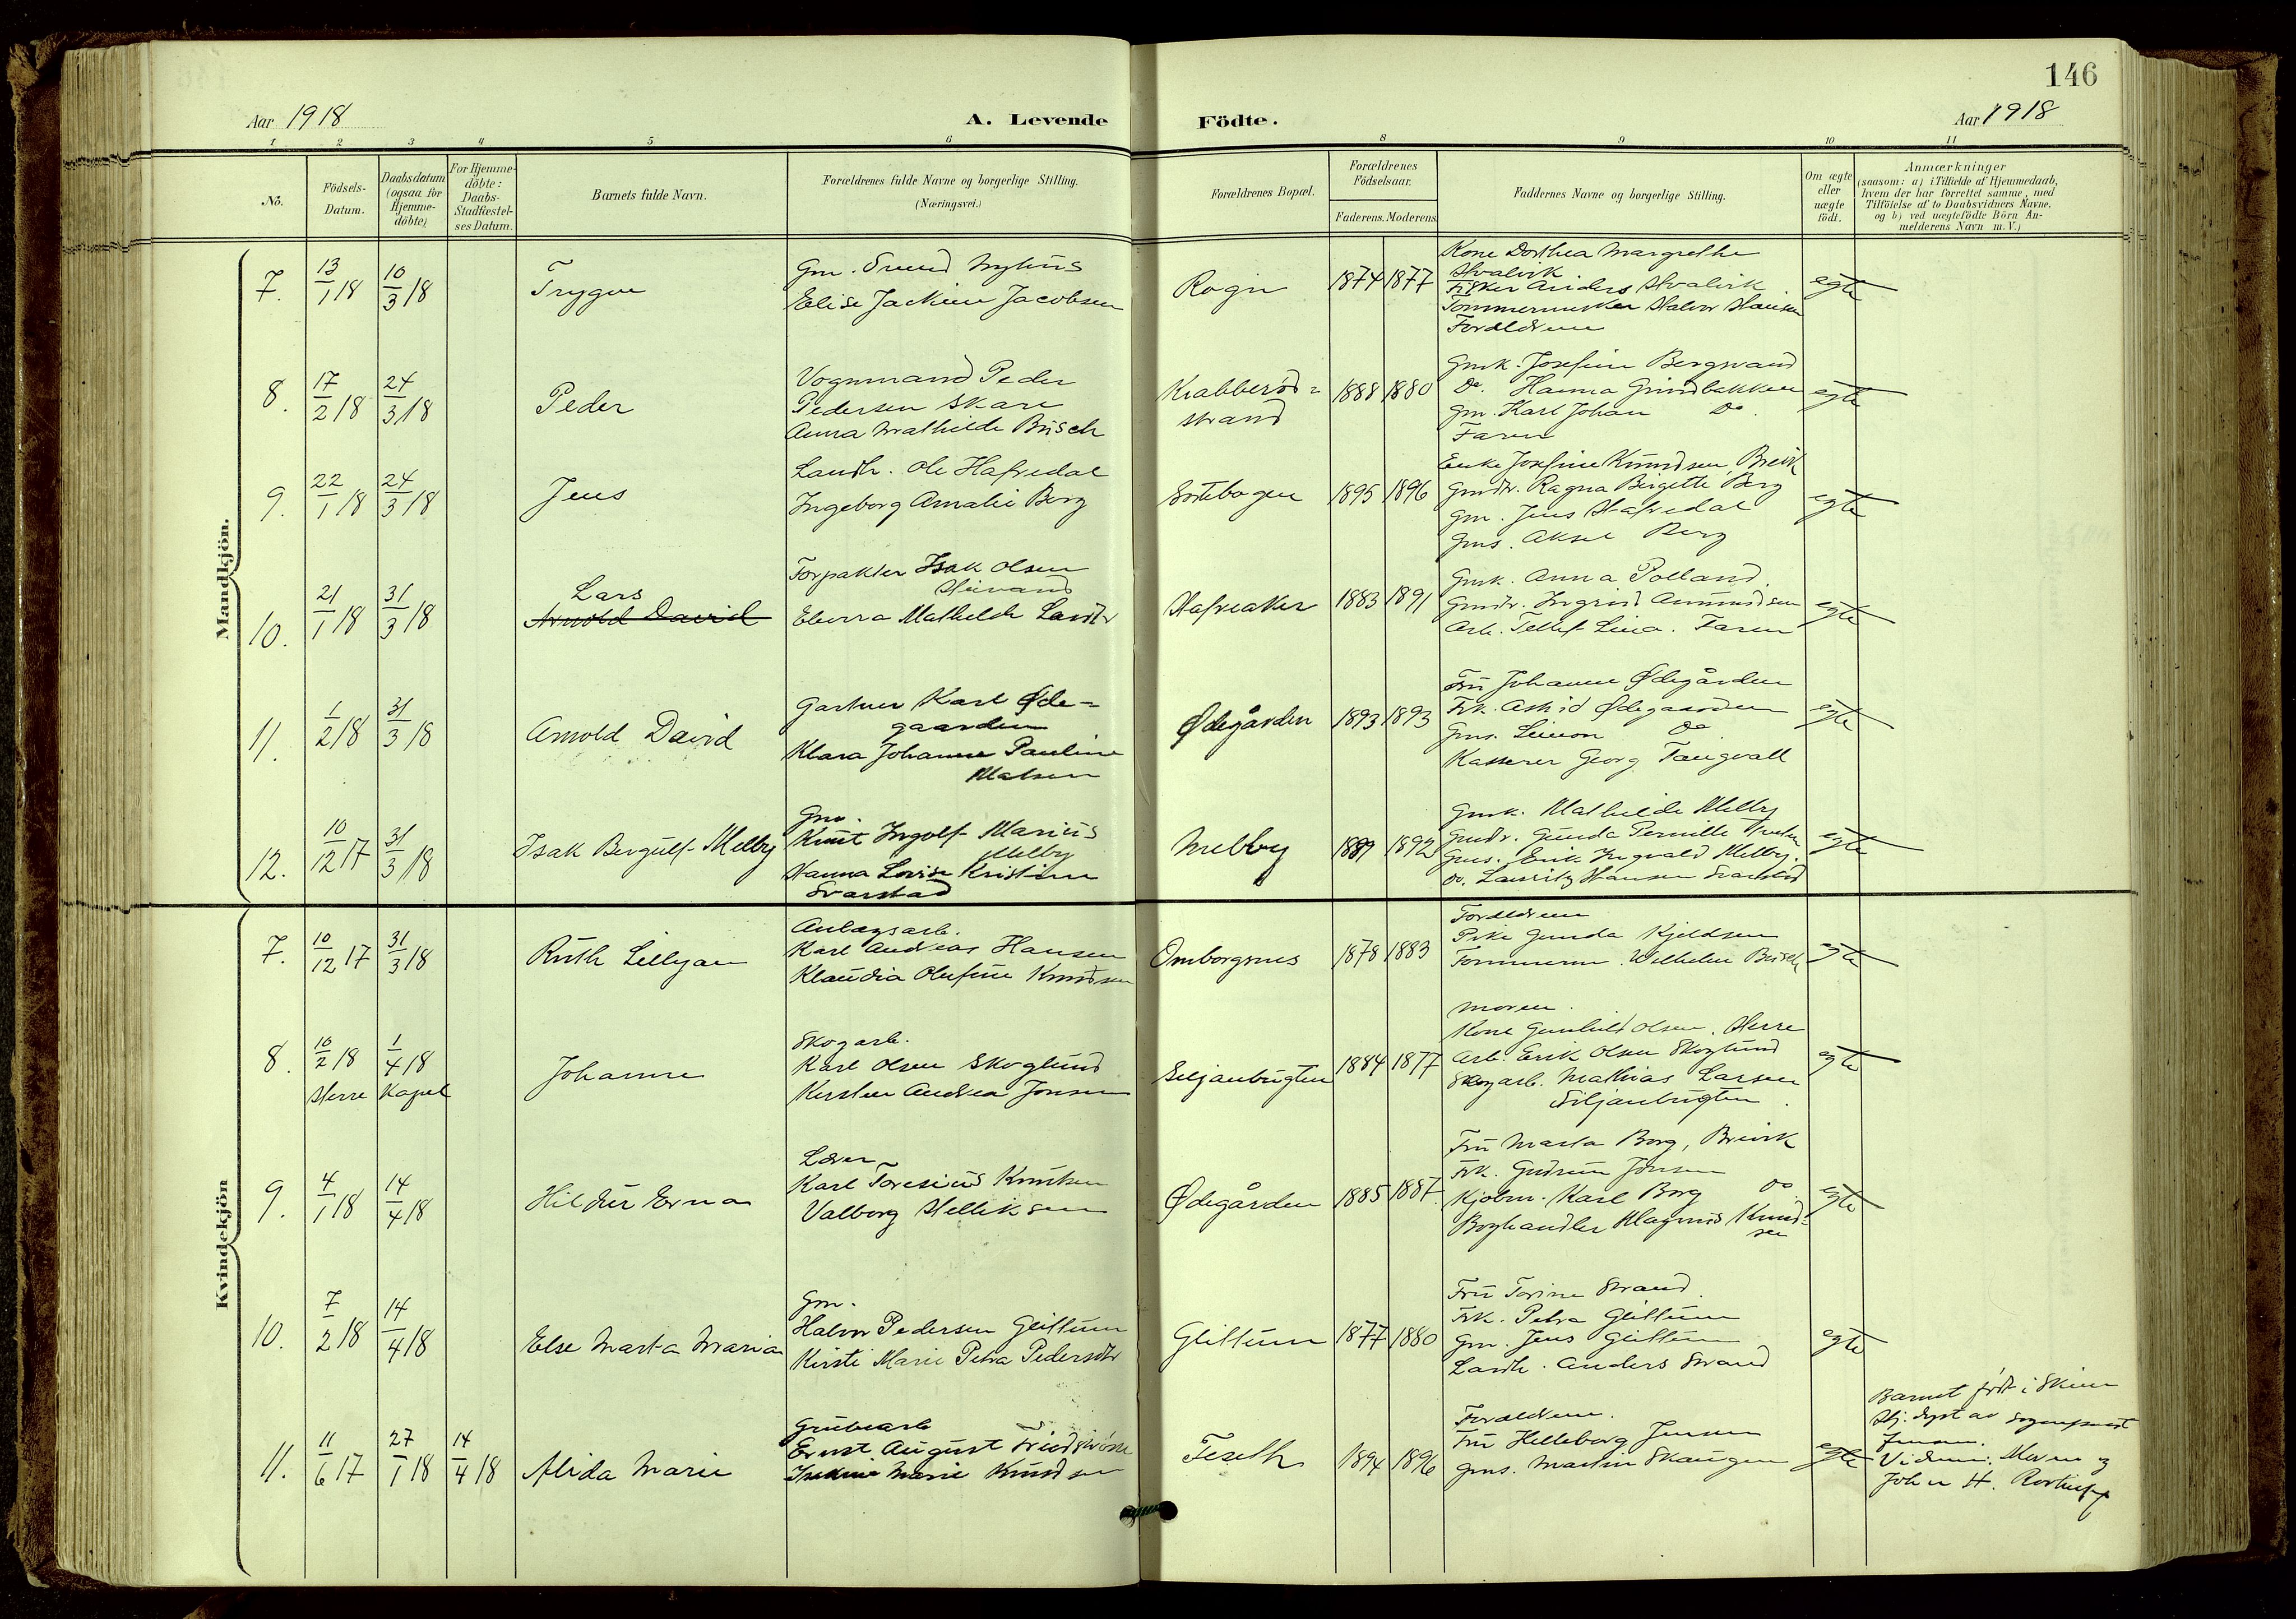 146
Aar 1918
A. Levende
Födte.
Aar 1918
1 2 3 4 5 6 8 9 10 11
No.
Födsels-Datum.
Daabsdatum (ogsaa for Hjemme-döbte)
For Hjemme-döbte: Daabs-Stadfæstel-ses Datum.
Barnets fulde Navn.
Forældrenes fulde Navne og borgerlige Stilling. (Næringsvei.)
Forældrenes Bopæl.
Forældrenes Födselsaar.
Faderens. Moderens.
Faddernes Navne og borgerlige Stilling.
Om ægte eller uægte födt.
Anmærkninger
(saasom: a) i Tilfælde af Hjemmedaab,
hvem der har forrettet samme, med
Tilföielse af to Daabsvidners Navne.
og b) ved uægtefödte Börn An-
melderens Navn m. V.)
Mandkjön.
7. 13/1 18 10/3 18 Trygve
Gm. Svend
Elise Jackine Jacobsen
Rogn 1874 1877
Kone Dorthea Margrethe
Hvalvik
Fisker Anders Hvalvik
Halvor Hansen
Forældrene
egte
8. 17/2 18 24/3 18 Peder
Vognmand Peder
Pedersen Skare
Anna Mathilde Busch
Krabberød=
strand
1888 1880
Gmk. Josefine Bergsvand
Do. Hanna Grindbakken
Gm. Karl Johan Do.
Faren
egte
9. 22/1 18 24/3 18 Jens
Landh. Ole Hafredal
Ingeborg Amalie Berg
1895 1896
Enke Josefine Knudsen, Brevik
Gmdtr. Ragna Birgitte Berg
Gm. Jens Hafredal
Gms. Aksel Berg
egte
10. 21/1 18 31/3 18 Lars
Arnold David
Forpakter Isak Olsen
Mathilde
Hafreaker 1883 1891
Gmk. Anna Polland.
Gmdtr. Ingrid Amundsen
Arb. Tellef Lina. Faren
egte
11. 1/2 18 31/3 18 Arnold David
Gartner Karl Øde=
gaarden
Klara Johanne Pauline
Madsen
Ødegården 1893 1893
Fru Johanne Ødegården
Frk. Astrid Ødegaarden
Gms. Simon Do.
Kasserer Georg Tangvall
egte
12. 10/12 17 31/3 18 Isak Bergulf Melby
Gm.
Knut Ingolf Marius
Melby
Hanna Lovise Kristine
Svarstad
Melby 1889 1892
Gmk. Mathilde Melby
Gmdtr. Gunda Pernille
Gms. Erik Ingvald Melby.
Do. Lauritz Hansen Svarstad
egte
Kvindekjön
7. 10/12 17 31/3 18 Ruth Lillyan
Anlægsarb.
Karl Andreas Hansen
Klaudia Olufine Knudsen
Omborgsnes 1878 1883
Forældrene
Pike Gunda Kjeldsen
Tømmerm. Wilhelm Busch
egte
8. 10/2 18 1/4 18 Johanne
Herre Kapel
Skogarb.
Karl Olsen Skoglund
Kirsten Andrea Jonsen
Siljanbugten 1884 1877
Moren.
Kone Gunhild Olsen, Herre
Arb. Erik Olsen Skoglund
Skogarb. Mathias Larsen
Siljanbugten.
egte
9. 4/1 18 14/4 18 Hildur Erna
Lærer
Karl Toresius Knutsen
Valborg Helliksen
Ødegården 1885 1887
Fru Marta Borg, Brevik
Frk. Gudrun Jonsen
Kjøbm. Karl Borg Do
Boghandler Magnus Knud=
sen
egte
10. 7/2 18 14/4 18 Else Marta Maria
Gm.
Halvor Pedersen Glittum
Kirsti Marie Petra Pedersdtr
Glittum 1877 1880
Fru Torine Strand.
Frk. Petra Glittum
Gm. Jens Glittum
Landh. Anders Strand
egte
11. 11/6 17 27/1 18 14/4 18 Alida Marie
Grubearb
Ernst August
Marie Knudsen
Feseth 1894 1896
Forældrene.
Fru Helleborg Jensen
Gms. Martin Skaugen
egte
Barnet født i Skien
Hj. døpt av Sogneprest
Jensen.
Vidner: Moren og
John H.